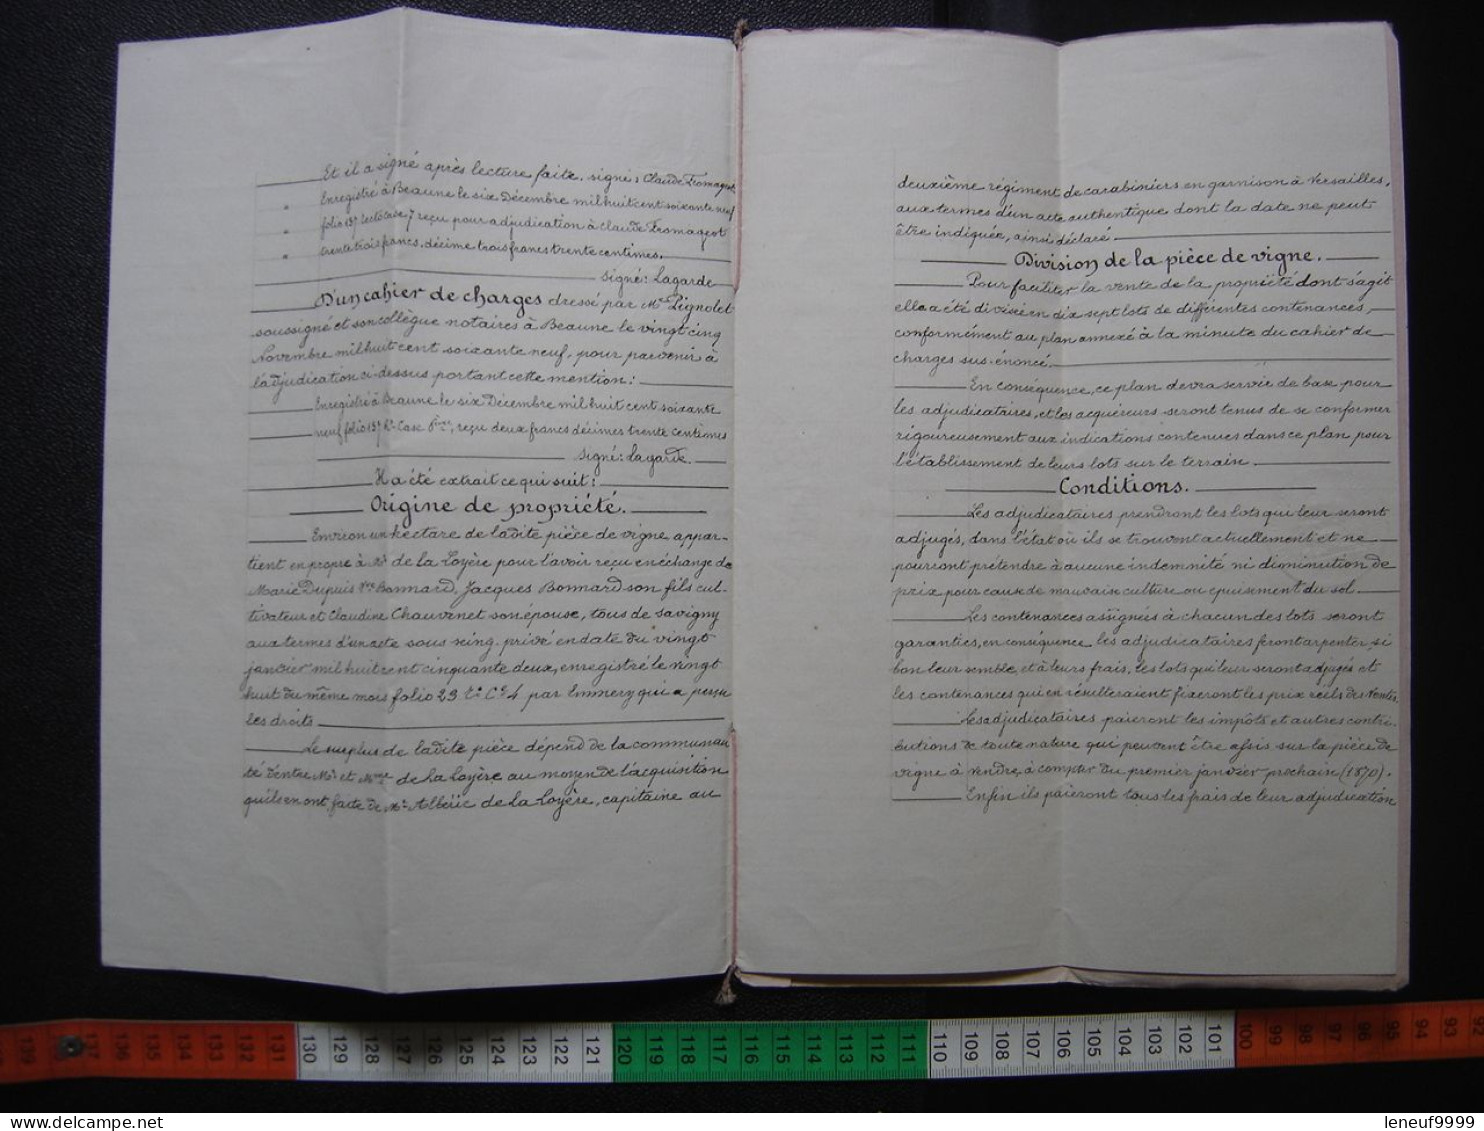 Et il a signé après lecture faite. signé: Claude Fromageot
Enregistré à Beaune le six Décembre mil huit cent soixante neuf
folio 137 recto Case 7 reçu pour adjudication à Claude Fromageot
trente trois francs. décime trois francs trente centimes.
Signé: Lagarde
D'un cahier de charges dressé par Me Pignolet
soussigné et son collègue notaires à Beaune le vingt cinq
Novembre mil huit cent soixante neuf, pour parvenir à
l'adjudication ci-dessus portant cette mention:
Enregistré à Beaune le six Décembre mil huit cent soixante
neuf folio 137 Ro Case 6, reçu deux francs décimes trente centimes
Signé: Lagarde.
Il a été extrait ce qui suit:
Origine de propriété.
Environ un hectare de ladite pièce de vigne appar-
tient en propre à Mr de la Loyère pour l'avoir reçu en échange de
Marie Dupuis Vve Bonnard, Jacques Bonnard son fils cul-
tivateur et Claudine Chauvenet son épouse, tous de Savigny
aux termes d'un acte sous seing privé en date du vingt
janvier mil huit cent cinquante deux, enregistré le vingt
huit du même mois folio 23 Vo Ce 4 par Emmery qui a perçu
les droits
Le surplus de ladite pièce dépend de la communau
té d'entre Mr et Mme de La Loyère au moyen de l'acquisition
qu'ils en ont faite de Mr Albéric de la Loyère, capitaine au
deuxième régiment de carabiniers en garnison à Versailles,
aux termes d'un acte authentique dont la date ne peut
être indiquée, ainsi déclaré
Division de la pièce de vigne.
Pour faciliter la vente de la propriété dont s'agit
elle a été divisée en dix sept lots de différentes contenances,
conformément au plan annexé à la minute du cahier de
charges sus-énoncé.
En conséquence, ce plan devra servir de base pour
les adjudicataires, et les acquéreurs seront tenus de se conformer
rigoureusement aux indications contenues dans ce plan pour
l'établissement de leurs lots sur le terrain
Conditions.
Les adjudicataires prendront les lots qui leur seront
adjugés, dans l'état où ils se trouvent actuellement et ne
pourront prétendre à aucune indemnité ni diminution de
prix pour cause de mauvaise culture ou épuisement du sol.
Les contenances assignées à chacun des lots seront
garanties, en conséquence les adjudicataires feront arpenter, si
bon leur semble et à leurs frais, les lots qui leur seront adjugés et
les contenances qui en résulteraient fixeront les prix réels des Ventes.
Les adjudicataires paieront les impôts et autres contri-
butions de toute nature qui peuvent être assis sur la pièce de
vigne à vendre, à compter du premier janvier prochain (1870).
Enfin ils paieront tous les frais de leur adjudication
139 137 136 135 134 133 132 131 130 129 128 127 126 125 124 123 122 121 120 119 118 117 116 115 114 113 112 111 110 109 108 107 106 105 104 103 102 101 100 99 98 97 96 95 94 93 92
www.delcampe.net
leneuf9999